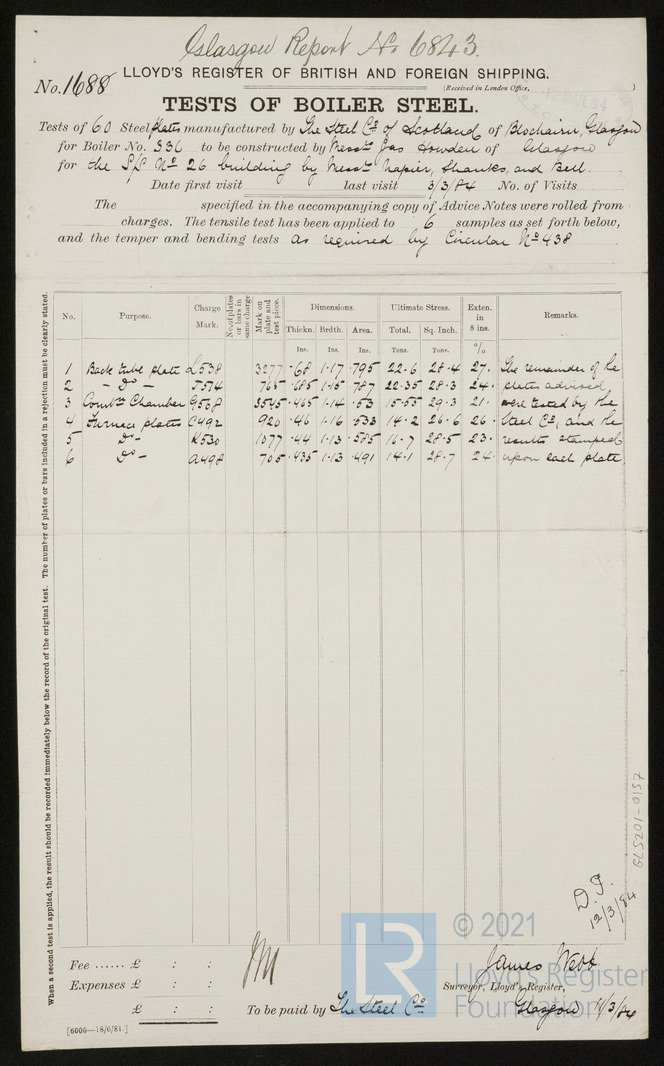 Glasgow Report No 6843.
No. 1688
LLOYD'S REGISTER OF BRITISH AND FOREIGN SHIPPING.
(Received in London Office, )
TESTS OF BOILER STEEL.
Tests of 60 Steel plates manufactured by The Steel Co. of Scotland of Blochairn, Glasgow
for Boiler No. 336 to be constructed by Messrs Jas Howden of Glasgow
for the S/S No 26 building by Messrs Napier, Shanks, and Bell.
Date first visit last visit 3/3/84 No. of Visits
The specified in the accompanying copy of Advice Notes were rolled from
charges. The tensile test has been applied to 6 samples as set forth below,
and the temper and bending tests as required by Circular No 438
No. Purpose. Charge Mark. No. of plates or bars in same charge Mark on plate and test piece. Dimensions. Ultimate Stress. Exten. in 8 ins. Remarks.
Thickn. Brdth. Area. Total. Sq. Inch.
Ins. Ins. Ins. Tons. Tons. %
1 Back tube plate L538 3277 ·68 1·17 ·795 22·6 28·4 27· The remainder of the
2 - Do - J574 765 ·685 1·15 ·787 22·35 28·3 24· plates advised,
3 Combn Chamber G538 3545 ·465 1·14 ·53 15·55 29·3 21· were tested by the
4 Furnace plates C492 920 ·46 1·16 ·533 14·2 26·6 26· Steel Co, and the
5 Do - K530 1077 ·44 1·13 ·585 16·7 28·5 23· results stamped
6 Do - A498 705 ·435 1·13 ·491 14·1 28·7 24· upon each plate.
When a second test is applied, the result should be recorded immediately below the record of the original test. The number of plates or bars included in a rejection must be clearly stated.
GLS201-0157
12/3/84
Fee ...... £ : :
Expenses £ : :
£ : :
To be paid by The Steel Co.
James Webb
Surveyor, Lloyd's Register,
Glasgow 11/3/84
[6000—18/6/81.]
© 2021
LR
Lloyd's Register
Foundation